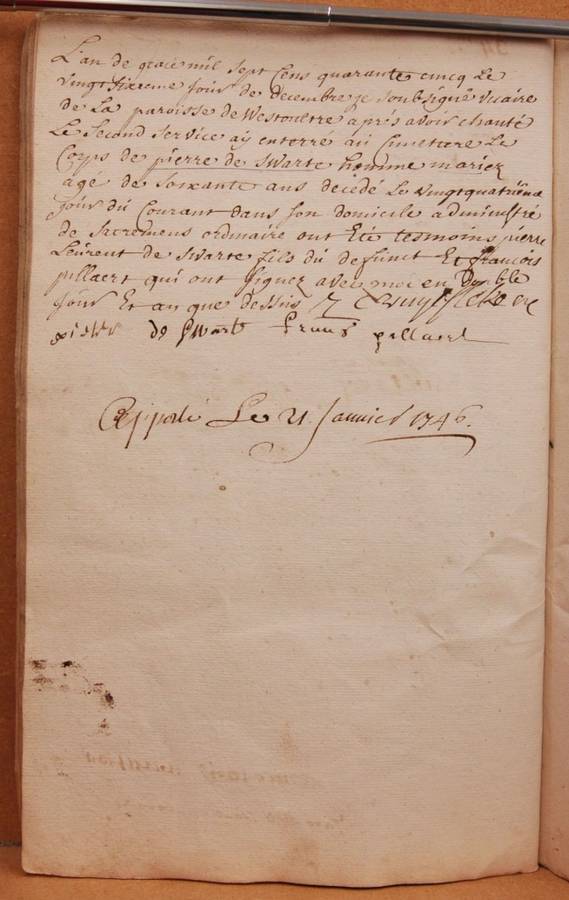 L'an de grace mil sept cens quarante cinq le
vingt sixieme jour de decembre je soubsigné vicaire
de la paroisse de Westoultre après avoir chanté
le second service aij enterré au cimettiere le
corps de pierre de swarte homme mariez
agé de soixante ans decedé le vingtquatrième
jour du courant dans son domicile administré
de sacremens ordinaire ont été tesmoins pierre
Leurent de swarte fils du defunct et francois
pillaert qui ont signez avec moi en double
jour et an que dessus
pieter de Swarte frans pellaert
Rapporté Le 21 Janvier 1746.